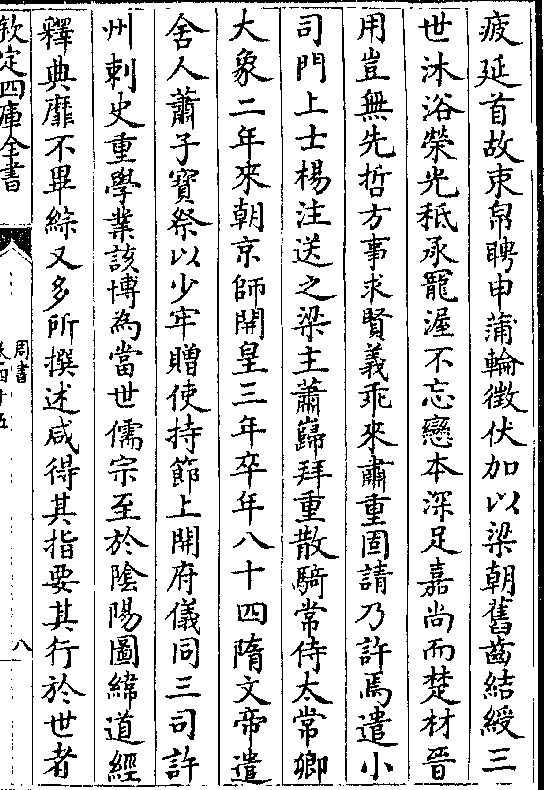 疲延首故束帛聘申蒲輪徴伏加以梁朝舊齒結綬三
世沐浴榮光秪承寵渥不忘戀本深足嘉尚而楚材晉
用豈無先哲方事求賢義乖來肅重固請乃許焉遣小
司門上士楊注送之梁主蕭巋拜重散騎常侍太常卿
大象二年來朝京師開皇三年卒年八十四隋文帝遣
舍人蕭子寶祭以少牢贈使持節上開府儀同三司許
州刺史重學業該博為當世儒宗至於隂陽圖緯道經
釋典靡不畢綜又多所撰述咸得其指要其行於世者
欽定四庫全書
周書
卷四十五
八